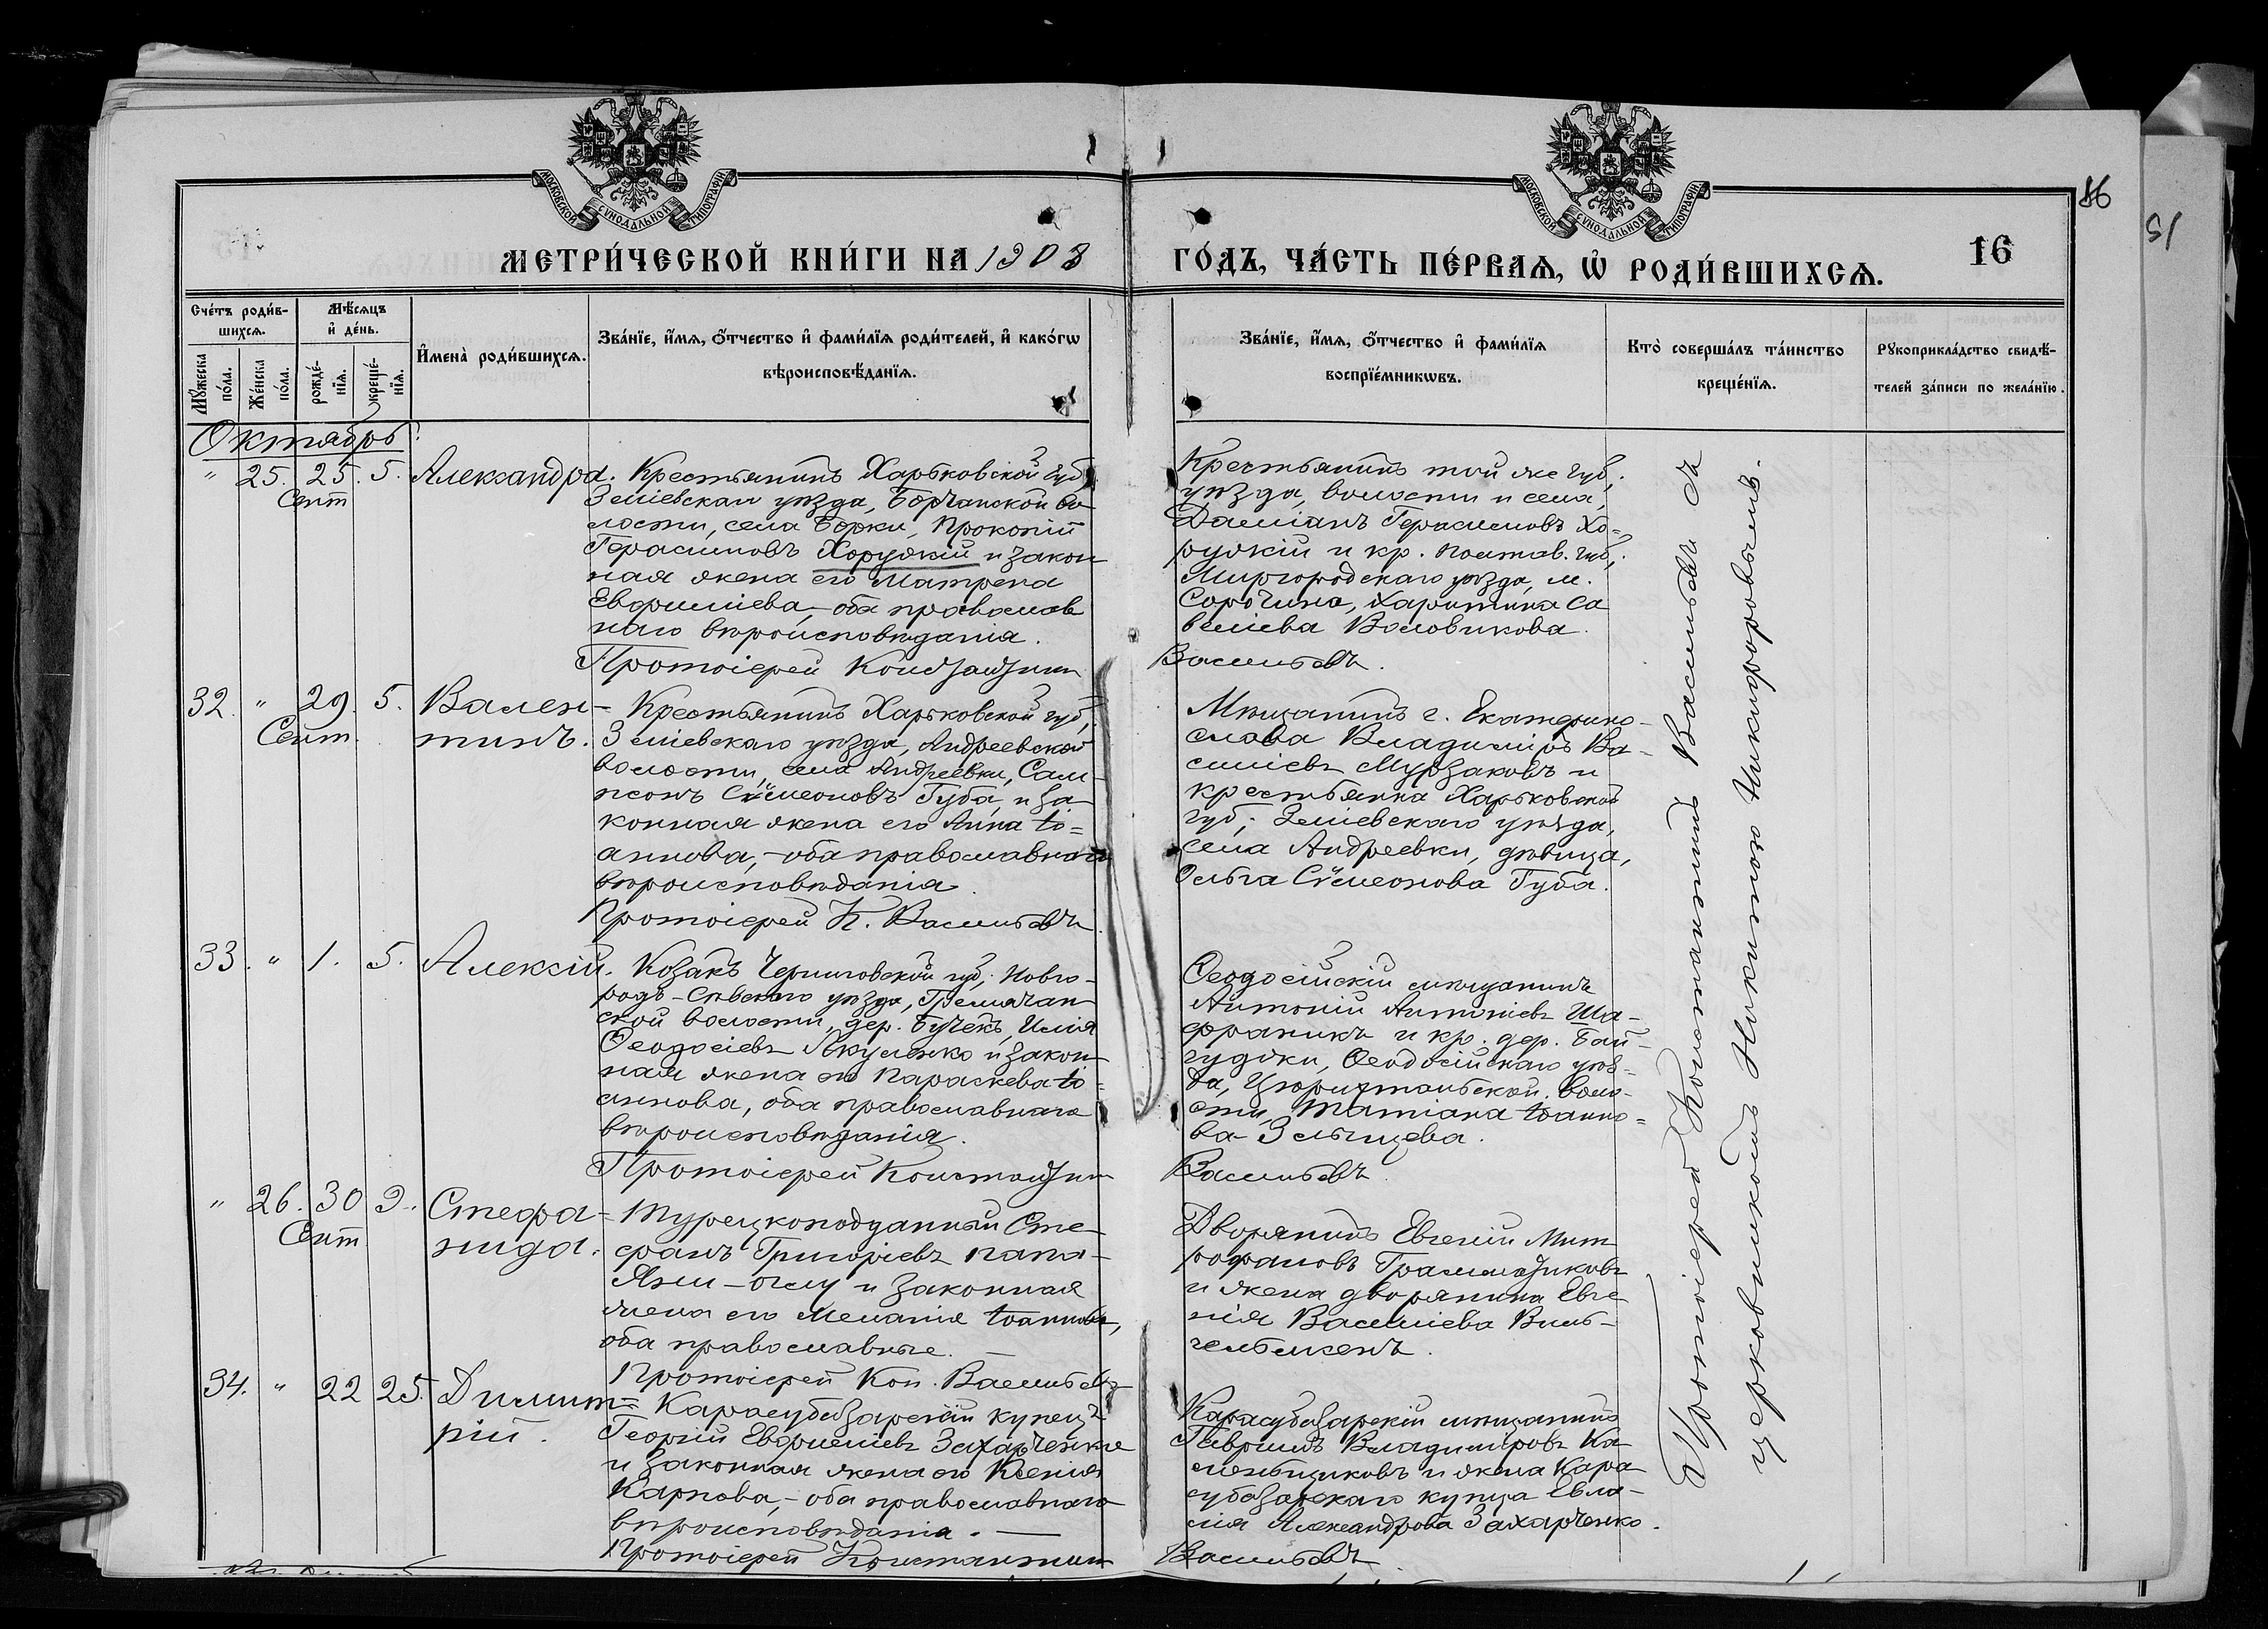 МОСКОВСКОЙ СѴНОДАЛЬНОЙ ТИПОГРАФІИ
МОСКОВСКОЙ СѴНОДАЛЬНОЙ ТИПОГРАФІИ
МЕТРИ́ЧЕСКОЙ КНИ́ГИ НА 1908
ГО́ДЪ, ЧА́СТЬ ПЕ́РВАѦ, Ѡ РОДИ́ВШИХСѦ.
16
16
15
Сче́тъ роди́в-
шихсѧ.
Мѣ́сѧцъ
и҆ де́нь.
Мꙋ́жеска по́ла.
Же́нска по́ла.
рожде́-
нїѧ.
креще́-
нїѧ.
И҆мена̀ роди́вшихсѧ.
Зва́нїе, и҆́мѧ, ѻ҆́тчество и҆ фами́лїѧ роди́телей, и҆ како́гѡ
вѣроисповѣ́данїѧ.
Зва́нїе, и҆́мѧ, ѻ҆́тчество и҆ фами́лїѧ
воспрїе́мникѡвъ.
Кто̀ соверша́лъ та́инство
креще́нїѧ.
Рꙋкоприкла́дство свидѣ́-
телей за́писи по жела́нїю.
Октябрь
" 25. 25. 5. Александра.
Сент
Крестьянинъ Харьковской губ.
Зміевскаго уѣзда, Борчанской во
лости, села Борки, Прокопій
Герасимовъ Хоружій и закон
ная жена его Матрена
Евфиміева, - оба православ
наго вѣроисповѣданія.
Протоіерей Константин
Крестьянинъ той же губ.,
уѣзда, волости и села,
Даміанъ Герасимовъ Хо-
ружій и кр. Полтав. губ.,
Миргородскаго уѣзда, м.
Сорочина, Харитина Са
веліева Воловикова.
Васильевъ.
32. " 29. 5. Вален-
Сент. тинъ.
Крестьянинъ Харьковской губ.,
Зміевскаго уѣзда, Андреевской
волости, села Андреевки, Сам-
псонъ Сѵмеоновъ Губа, и за
конная жена его Анна Іо=
аннова, - оба православнаго
вѣроисповѣданія.
Протоіерей К. Васильевъ
Мѣщанинъ г. Екатерино-
слава Владиміръ Ва-
силіевъ Мурзаковъ и
крестьянка Харьковской
губ., Зміевскаго уѣзда,
села Андреевки, дѣвица,
Ольга Сѵмеонова Губа.
33. " 1. 5. Алексій.
Козакъ Черниговской губ., Новго-
родъ-Сѣвскаго уѣзда, Гремячан
ской волости, дер. Бучекъ, Илія
Ѳеодосіевъ Якуменко и закон
ная жена его Параскева Іо=
аннова, оба православнаго
вѣроисповѣданія.
Протоіерей Константин
Ѳеодосійскій мѣщанинъ
Антоній Антоніевъ Ша-
франикъ и кр. дер. Бай-
гуджи, Ѳеодосійскаго уѣз-
да, Цюрихтальской воло-
сти, Татіана Іоанно=
ва
Васильевъ.
" 26. 30 9. Стефа-
Сент нида.
Турецкоподданный Сте-
фанъ Григоріевъ Папа-
оглу и законная
жена его Меланія Іоаннова,
оба православные. —
Протоіерей Кон. Васильевъ
Дворянинъ Евгеній Мит
рофановъ Грамматиковъ
и жена дворянина Евге
нія Василіева
34. " 22 25. Димит=
рій.
Карасубазарскій купецъ
Георгій Евфиміевъ Захарченко
и законная жена его Ксенія
Карпова, - оба православнаго
вѣроисповѣданія. —
Протоіерей Константин
Карасубазарскій мѣщанинъ
Гавріилъ Владиміровъ Ка
менщиковъ и жена Кара
субазарскаго купца Евла-
мпія Александрова Захарченко.
Васильевъ
Протоіерей Константинъ Васильевъ съ
церковникомъ Никитою Никифоровымъ.